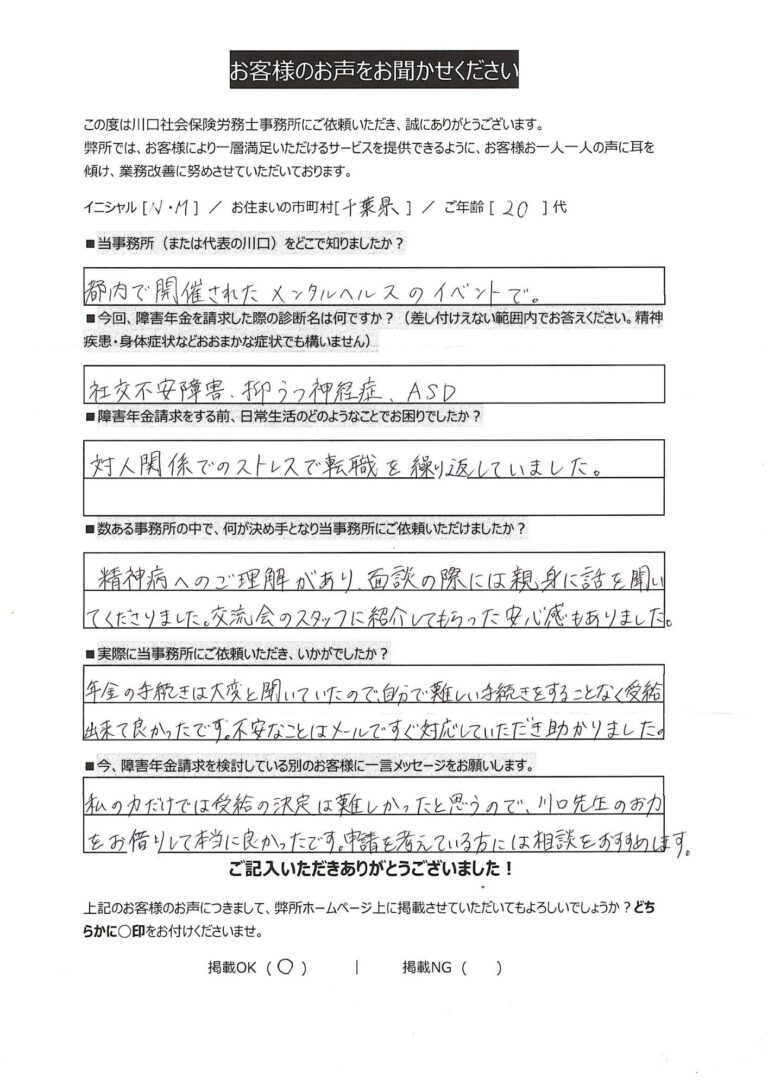 お客様のお声をお聞かせください
この度は川口社会保険労務士事務所にご依頼いただき、誠にありがとうございます。
弊所では、お客様により一層満足いただけるサービスを提供できるように、お客様お一人一人の声に耳を
傾け、業務改善に努めさせていただいております。
イニシャル [ N・M ] / お住まいの市町村[ 千葉県 ] / ご年齢 [ 20 ] 代
■当事務所（または代表の川口）をどこで知りましたか？
都内で開催されたメンタルヘルスのイベントで。
■今回、障害年金を請求した際の診断名は何ですか？（差し付けえない範囲内でお答えください。精神
疾患・身体症状などおおまかな症状でも構いません）
社交不安障害、抑うつ神経症、ASD
■障害年金請求をする前、日常生活のどのようなことでお困りでしたか？
対人関係でのストレスで転職を繰り返していました。
■数ある事務所の中で、何が決め手となり当事務所にご依頼いただけましたか？
精神病へのご理解があり、面談の際には親身に話を聞い
てくださりました。交流会のスタッフに紹介してもらった安心感もありました。
■実際に当事務所にご依頼いただき、いかがでしたか？
年金の手続きは大変と聞いていたので自分で難しい手続きをすることなく受給
出来て良かったです。不安なことはメールですぐ対応していただき助かりました。
■今、障害年金請求を検討している別のお客様に一言メッセージをお願いします。
私の力だけでは受給の決定は難しかったと思うので、川口先生のお力
をお借りして本当に良かったです。申請を考えている方には相談をおすすめします。
ご記入いただきありがとうございました！
上記のお客様のお声につきまして、弊所ホームページ上に掲載させていただいてもよろしいでしょうか？どち
らかに〇印をお付けくださいませ。
掲載OK （ 〇 ） | 掲載NG （ ）